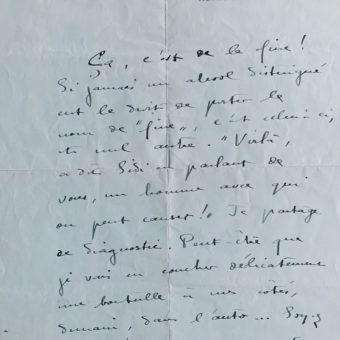 Ça, c'est de la fine !
Si jamais un alcool distingué
eut le droit de porter le
nom de "fine", c'est celui-ci,
et nul autre. "Voilà,
a dit Sidi en parlant de
vous, un homme avec qui
on peut causer !" Je partage
ce diagnostic. Peut-être que
je vais en coucher délicatement
une bouteille à mes côtés,
demain, dans l'auto... Soyez